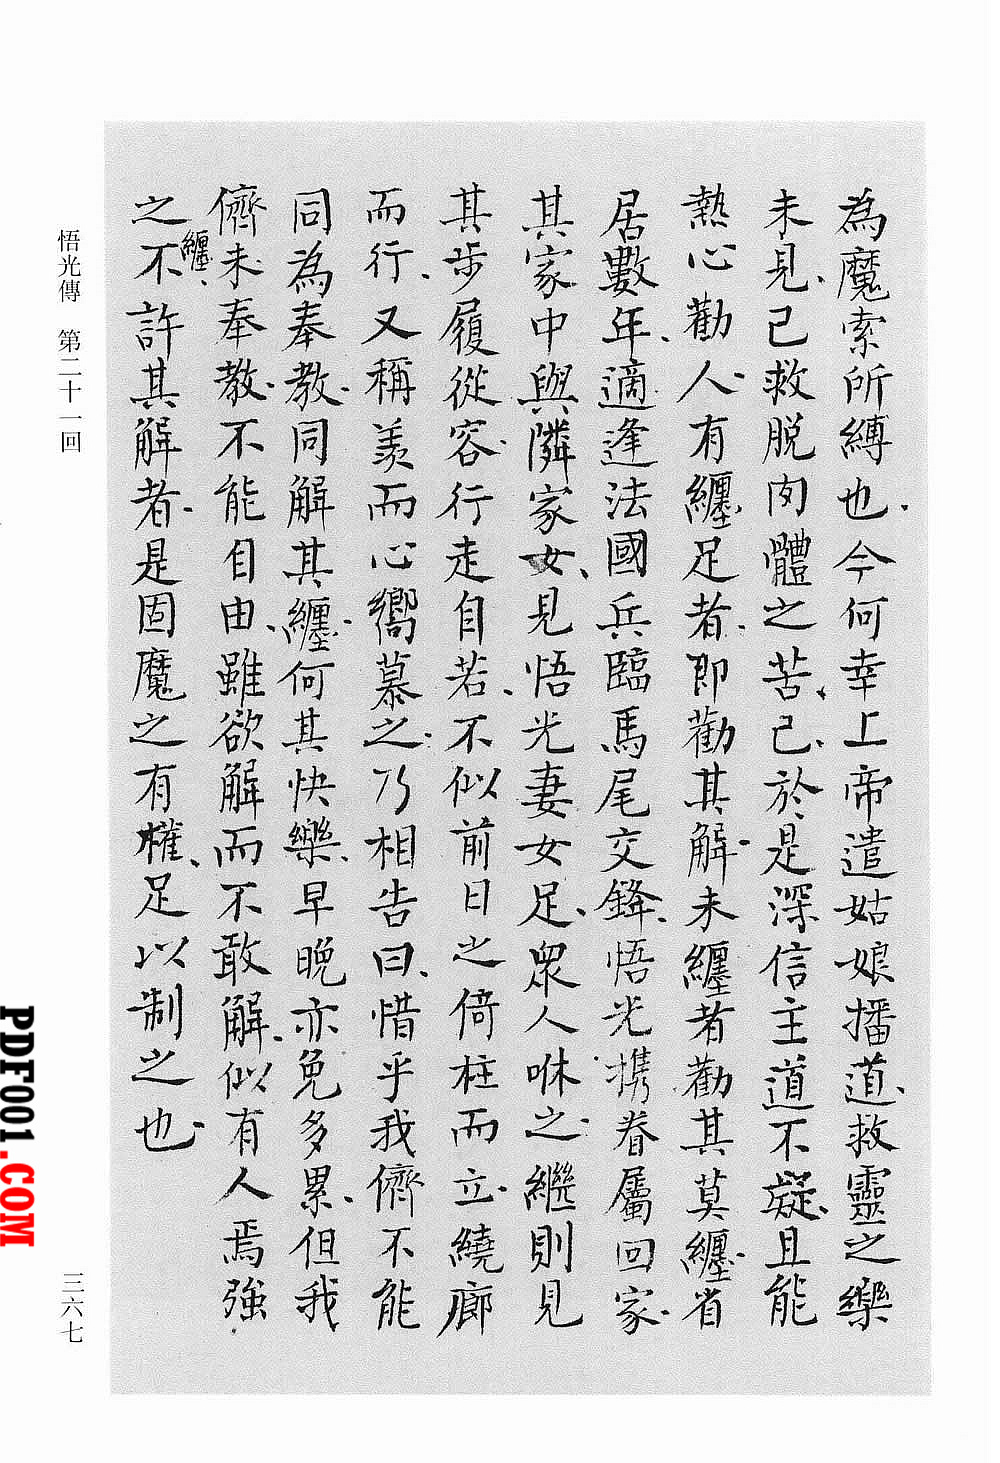 為魔索所縛也今何幸上帝遣姑娘播道救靈之樂
未見己救脱肉體之苦己於是深信主道不疑且能
熱心勸人有纏足者即勸其解未纏者勸其莫纏省
居數年適逢法國兵臨馬尾交鋒悟光携眷屬回家
其家中與隣家女見悟光妻女足衆人咻之繼則見
其步履從容行走自若不似前日之倚柱而立繞廊
而行又稱羨而心嚮慕之乃相告曰惜乎我儕不能
同為奉教同解其纏何其快樂早晚亦免多累但我
儕未奉教不能自由雖欲解而不敢解似有人焉強
纏
之不許其解者是固魔之有權足以制之也
悟光傳 第二十一回
三六七
PDF001.COM